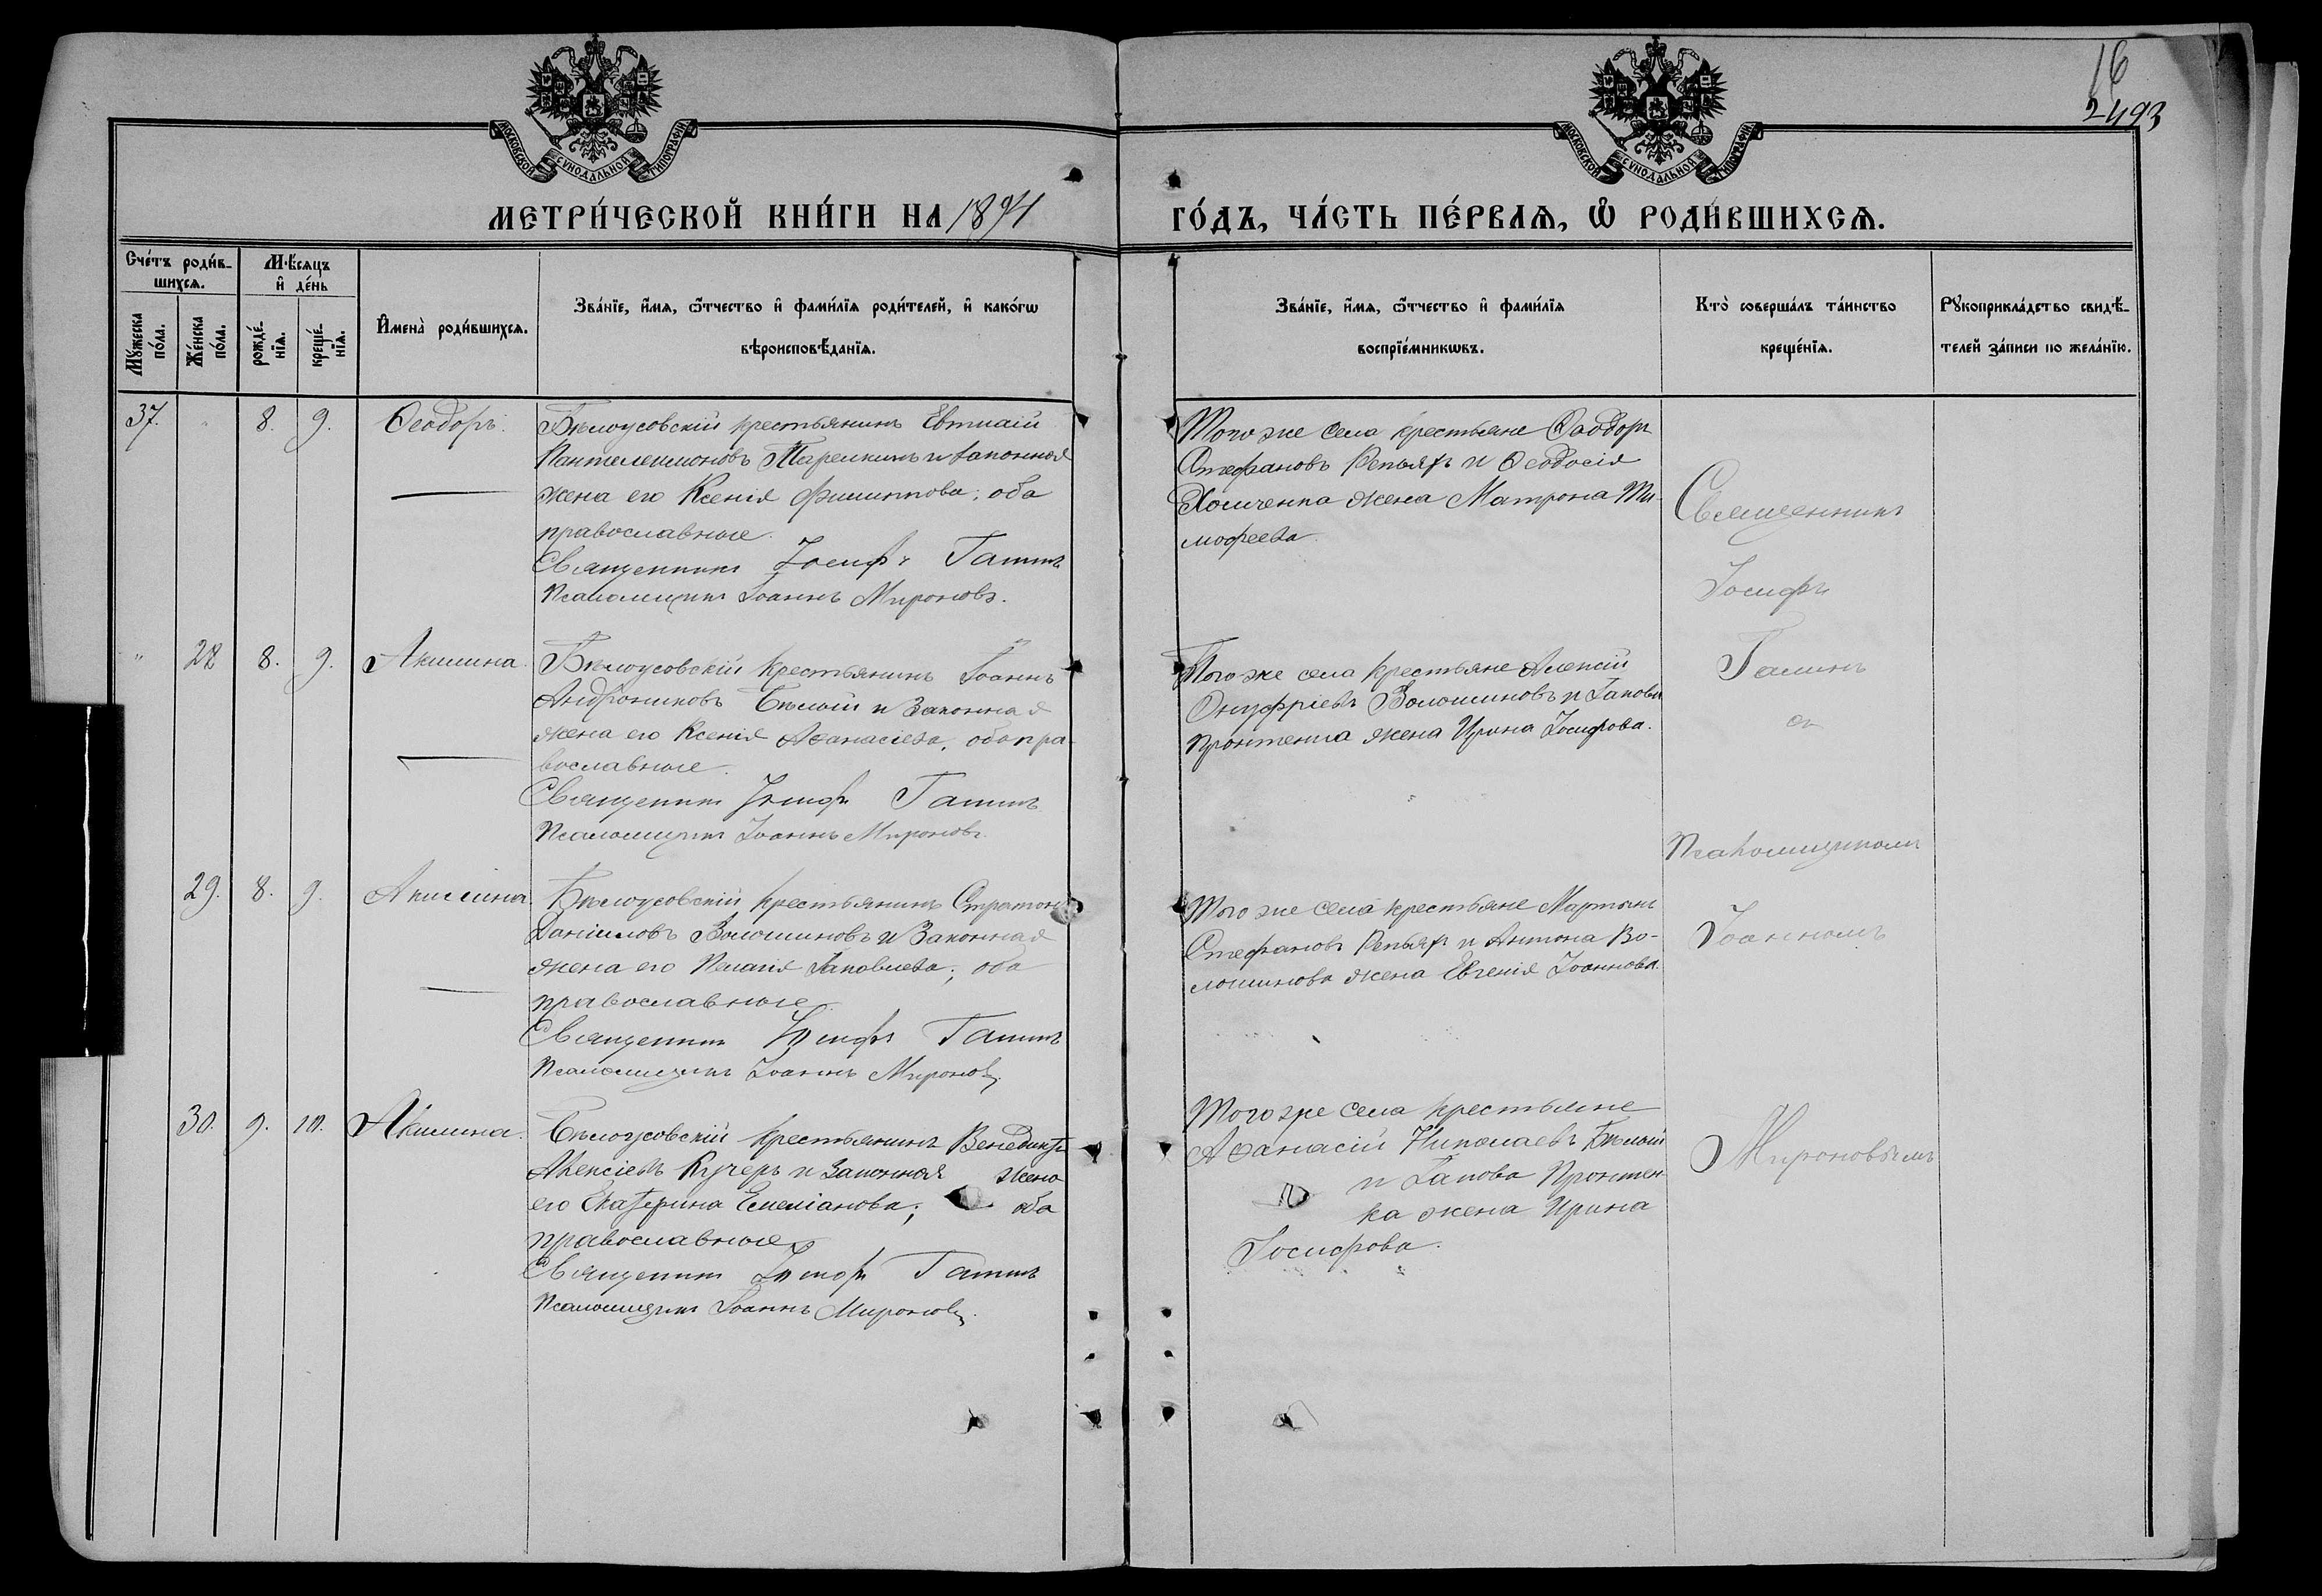 16
2493
МОСКОВСКОЙ СѴНОДАЛЬНОЙ ТИПОГРАФІИ
МОСКОВСКОЙ СѴНОДАЛЬНОЙ ТИПОГРАФІИ
МЕТРИ́ЧЕСКОЙ КНИ́ГИ НА 1894
ГО́ДЪ, ЧА́СТЬ ПЕ́РВАѦ, Ѡ҆ РОДИ́ВШИХСѦ.
Сче́тъ роди́в-
шихсѧ.
Мꙋ́жеска по́ла.
Же́нска по́ла.
Мѣ́сѧцъ и҆ де́нь
рожде́-
нїѧ.
креще́-
нїѧ.
И҆мена̀ роди́вшихсѧ.
Зва́нїе, и҆́мѧ, ѻ҆́тчество и҆ фами́лїѧ роди́телей, и҆ како́гѡ
вѣроисповѣ́данїѧ.
Зва́нїе, и҆́мѧ, ѻ҆́тчество и҆ фами́лїѧ
воспрїе́мникѡвъ.
Кто̀ соверша́лъ та́инство
креще́нїѧ.
Рꙋкоприкла́дство свидѣ́-
телей за́писи по жела́нїю.
37. 8. 9. Ѳеодоръ.
Бѣлоусовскій крестьянинъ Евтихій
Пантелеимоновъ и законная
жена его Ксенія Филиппова; оба
православные.
Священникъ Іосифъ
Псаломщикъ Іоаннъ Мироновъ.
Того же села крестьяне Ѳеодоръ
Стефановъ Репьяхъ и Ѳеодосія
жена Матрона Ти-
мофеева.
" 28 8. 9. Акилина.
Бѣлоусовскій крестьянинъ Іоаннъ
Андрониковъ Бѣлый и законная
жена его Ксенія Аѳанасіева, оба пра-
вославные.
Священникъ Іосифъ
Псаломщикъ Іоаннъ Мироновъ.
Того же села крестьяне Алексій
Онуфріевъ Волошиновъ и Іакова
жена Ирина Іосифова.
29. 8. 9. Акилина.
Бѣлоусовскій крестьянинъ Стратонъ
Даніиловъ Волошиновъ и законная
жена его Пелагія Іаковлева; оба
православные.
Священникъ Іосифъ
Псаломщикъ Іоаннъ Мироновъ.
Того же села крестьяне Мартинъ
Стефановъ Репьяхъ и Антона Во-
лошинова жена Евгенія Іоаннова.
30. 9. 10. Акилина.
Бѣлоусовскій крестьянинъ Венедиктъ
Алексіевъ Кучеръ и законная жена
его Екатерина Емеліанова; оба
православные.
Священникъ Іосифъ
Псаломщикъ Іоаннъ Мироновъ.
Того же села крестьяне
Аѳанасій Николаевъ Бѣлый
и Іакова
жена Ирина
Іосифова.
Священникъ
Іосифъ
съ
Псаломщикомъ
Іоанномъ
Мироновымъ